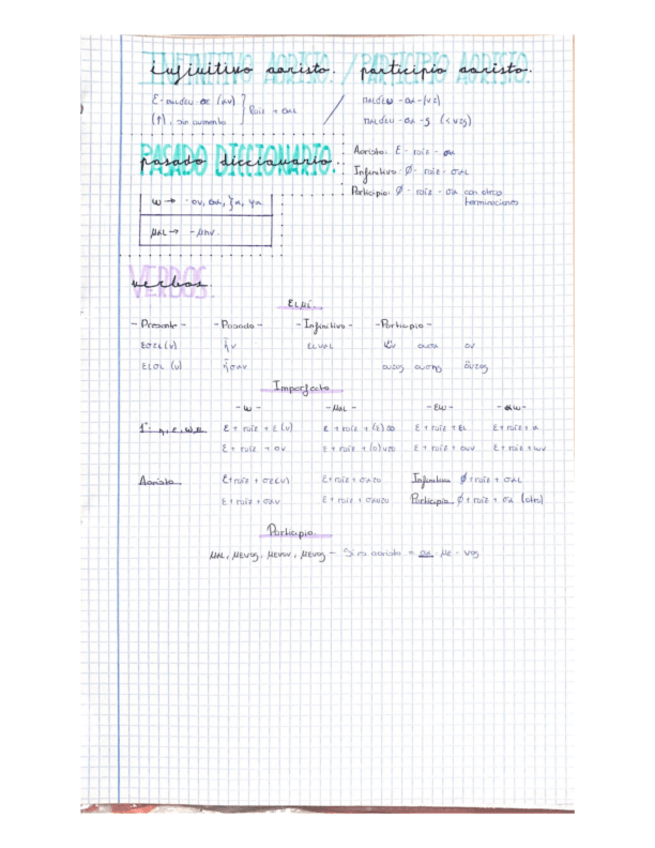 infinitivo aoristo. / participio aoristo.
Ε-παιδευ-σε (αν) } Raiz + σαι / παιδευ-σα-(ντ)
(↑), sin aumento παιδευ-σα-ς (<ντς)
pasado diccionario. Aoristo: Ε- raiz - σα
Infinitivo: Ø- raiz - σαι
Participio: Ø - raiz - σα con otras terminaciones
ω → -ον, σα, ξα, ψα
μαι → -μην.
verbos.
Ειμί.
- Presente - - Pasado - - Infinitivo - - Participio -
Εστι(ν) ἦν ειναι ὤν ουσα ον
εισι (ν) ἦσαν οντος ουσης ὄντος
Imperfecto
- ω - - μαι - - εω - - αω -
1ª: η, ε, ω, ει ε + raiz + ε (ν) ε + raiz + (ε) το ε + raiz + ει ε + raiz + α
ε + raiz + ον ε + raiz + (ο) ντο ε + raiz + ουν ε + raiz + ων
Aoristo ε + raiz + σε(ν) ε + raiz + σατο Infinitivo Ø + raiz + σαι
ε + raiz + σαν ε + raiz + σαντο Participio Ø + raiz + σα (otro)
Participio.
μαι, μενος, μενον, μενος - Si es aoristo = σα - με - νος